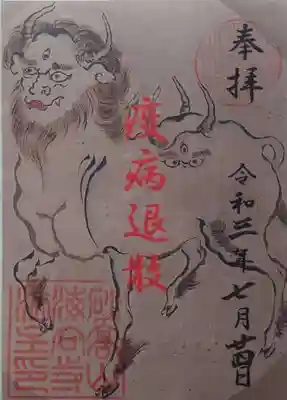 奉拝
疫病退散
令和三年七月廿四日